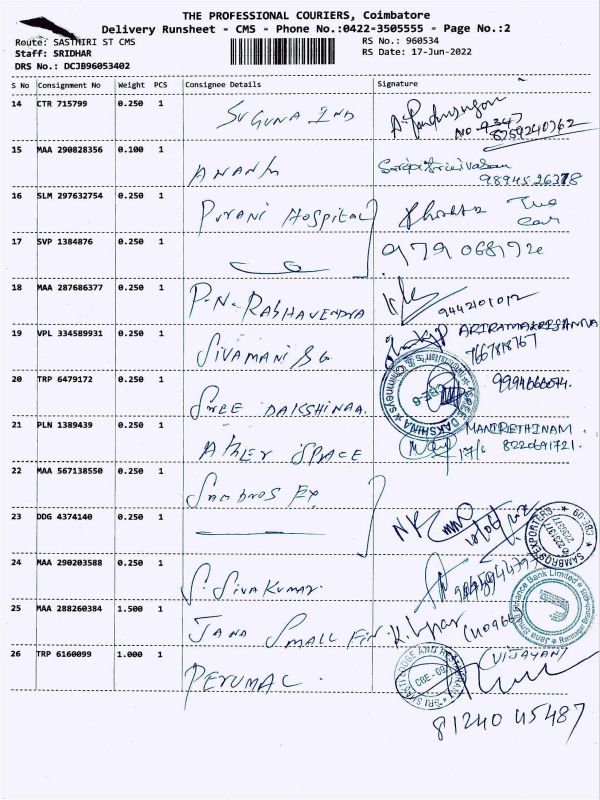 THE PROFESSIONAL COURIERS, Coimbatore
Delivery Runsheet - CMS - Phone No.:0422-3505555 - Page No.:2
Route: SASTHIRI ST CMS
RS No.: 960534
Staff: SRIDHAR
RS Date: 17-Jun-2022
DRS No.: DCJB96053402
S No Consignment No Weight PCS Consignee Details Signature
14 CTR 715799 0.250 1 SUGUNA IND
No 9347
8759240762
15 MAA 290828356 0.100 1 ANANH
9894526378
16 SLM 297632754 0.250 1 PURANI HOSPITAL
17 SVP 1384876 0.250 1
18 MAA 287686377 0.250 1 P.N. RAGHAVENDRA
9442101012
19 VPL 334589931 0.250 1 SIVAMANI SG
7667818767
20 TRP 6479172 0.250 1 SREE DAKSHINAA
9994666074.
21 PLN 1389439 0.250 1 SPACE
MANIRETHINAM.
17/6
22 MAA 567138550 0.250 1 SAMBROS EX
23 DDG 4374140 0.250 1
SAMBROS EXPORTERS
24 MAA 290203588 0.250 1 S. SIVAKUMAR
25 MAA 288260384 1.500 1 JANA SMALL FIN
Jana Small Finance Bank Limited
26 TRP 6160099 1.000 1 PERUMAL
CBE-09
(VIJAYAN)
81240 45487